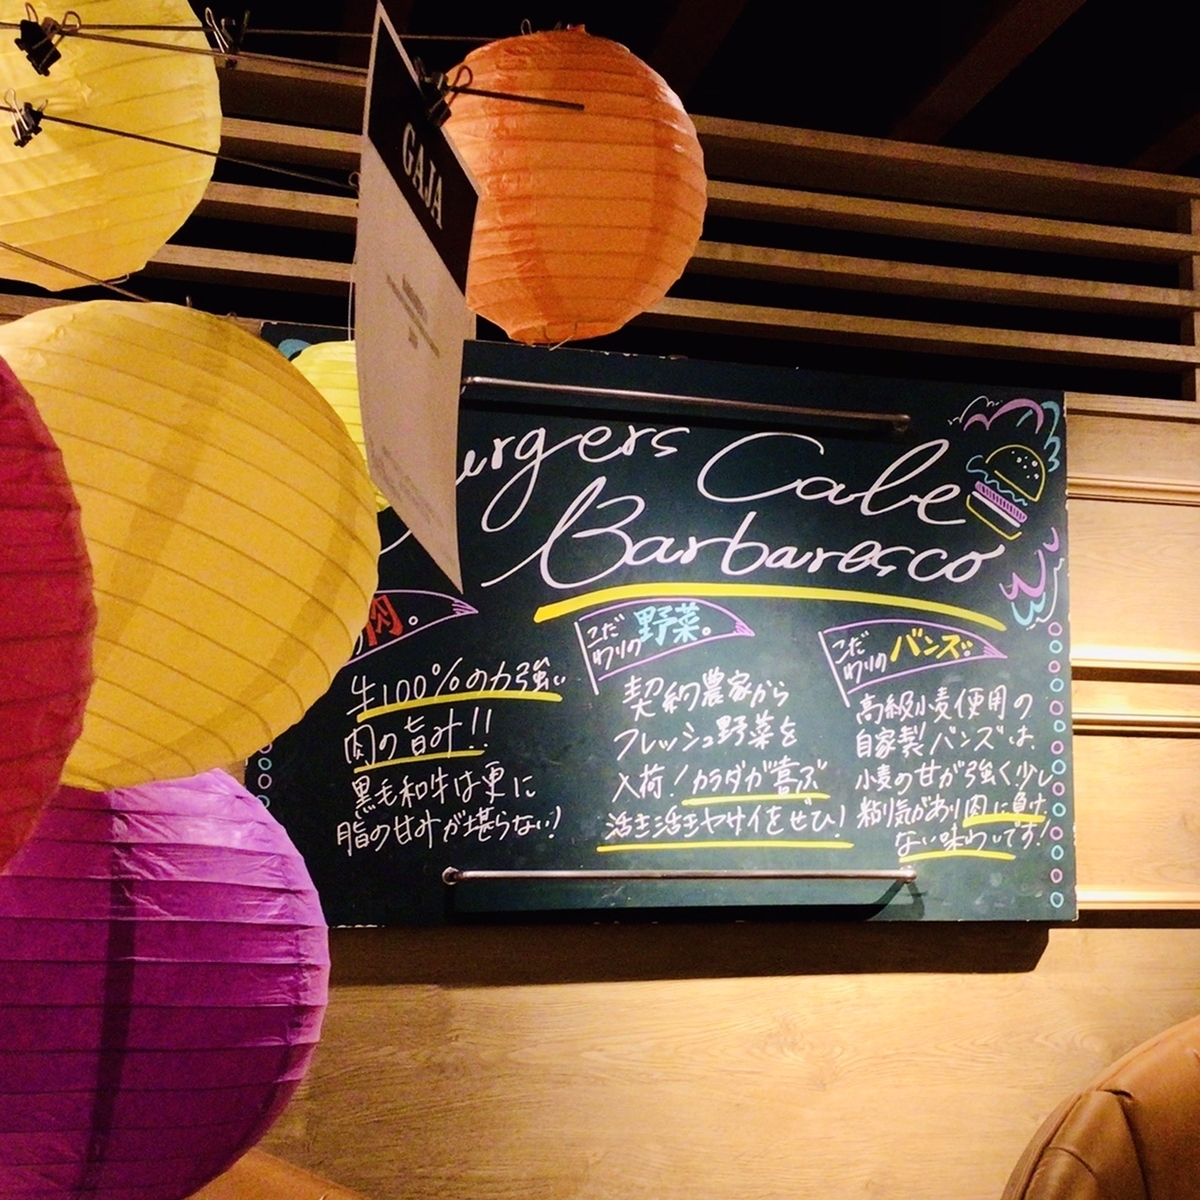 GAJA
urgers Cafe
Barbaresco
肉。
牛100%の力強い
肉の旨み!!
黒毛和牛は更に
脂の甘みが堪らない!
こだわりの野菜。
契約農家から
フレッシュ野菜を
入荷!カラダが喜ぶ
活き活きヤサイをぜひ!
こだわりのバンズ。
高級小麦使用の
自家製バンズは、
小麦の甘が強く少し
粘り気があり肉に負け
ない味わいです!